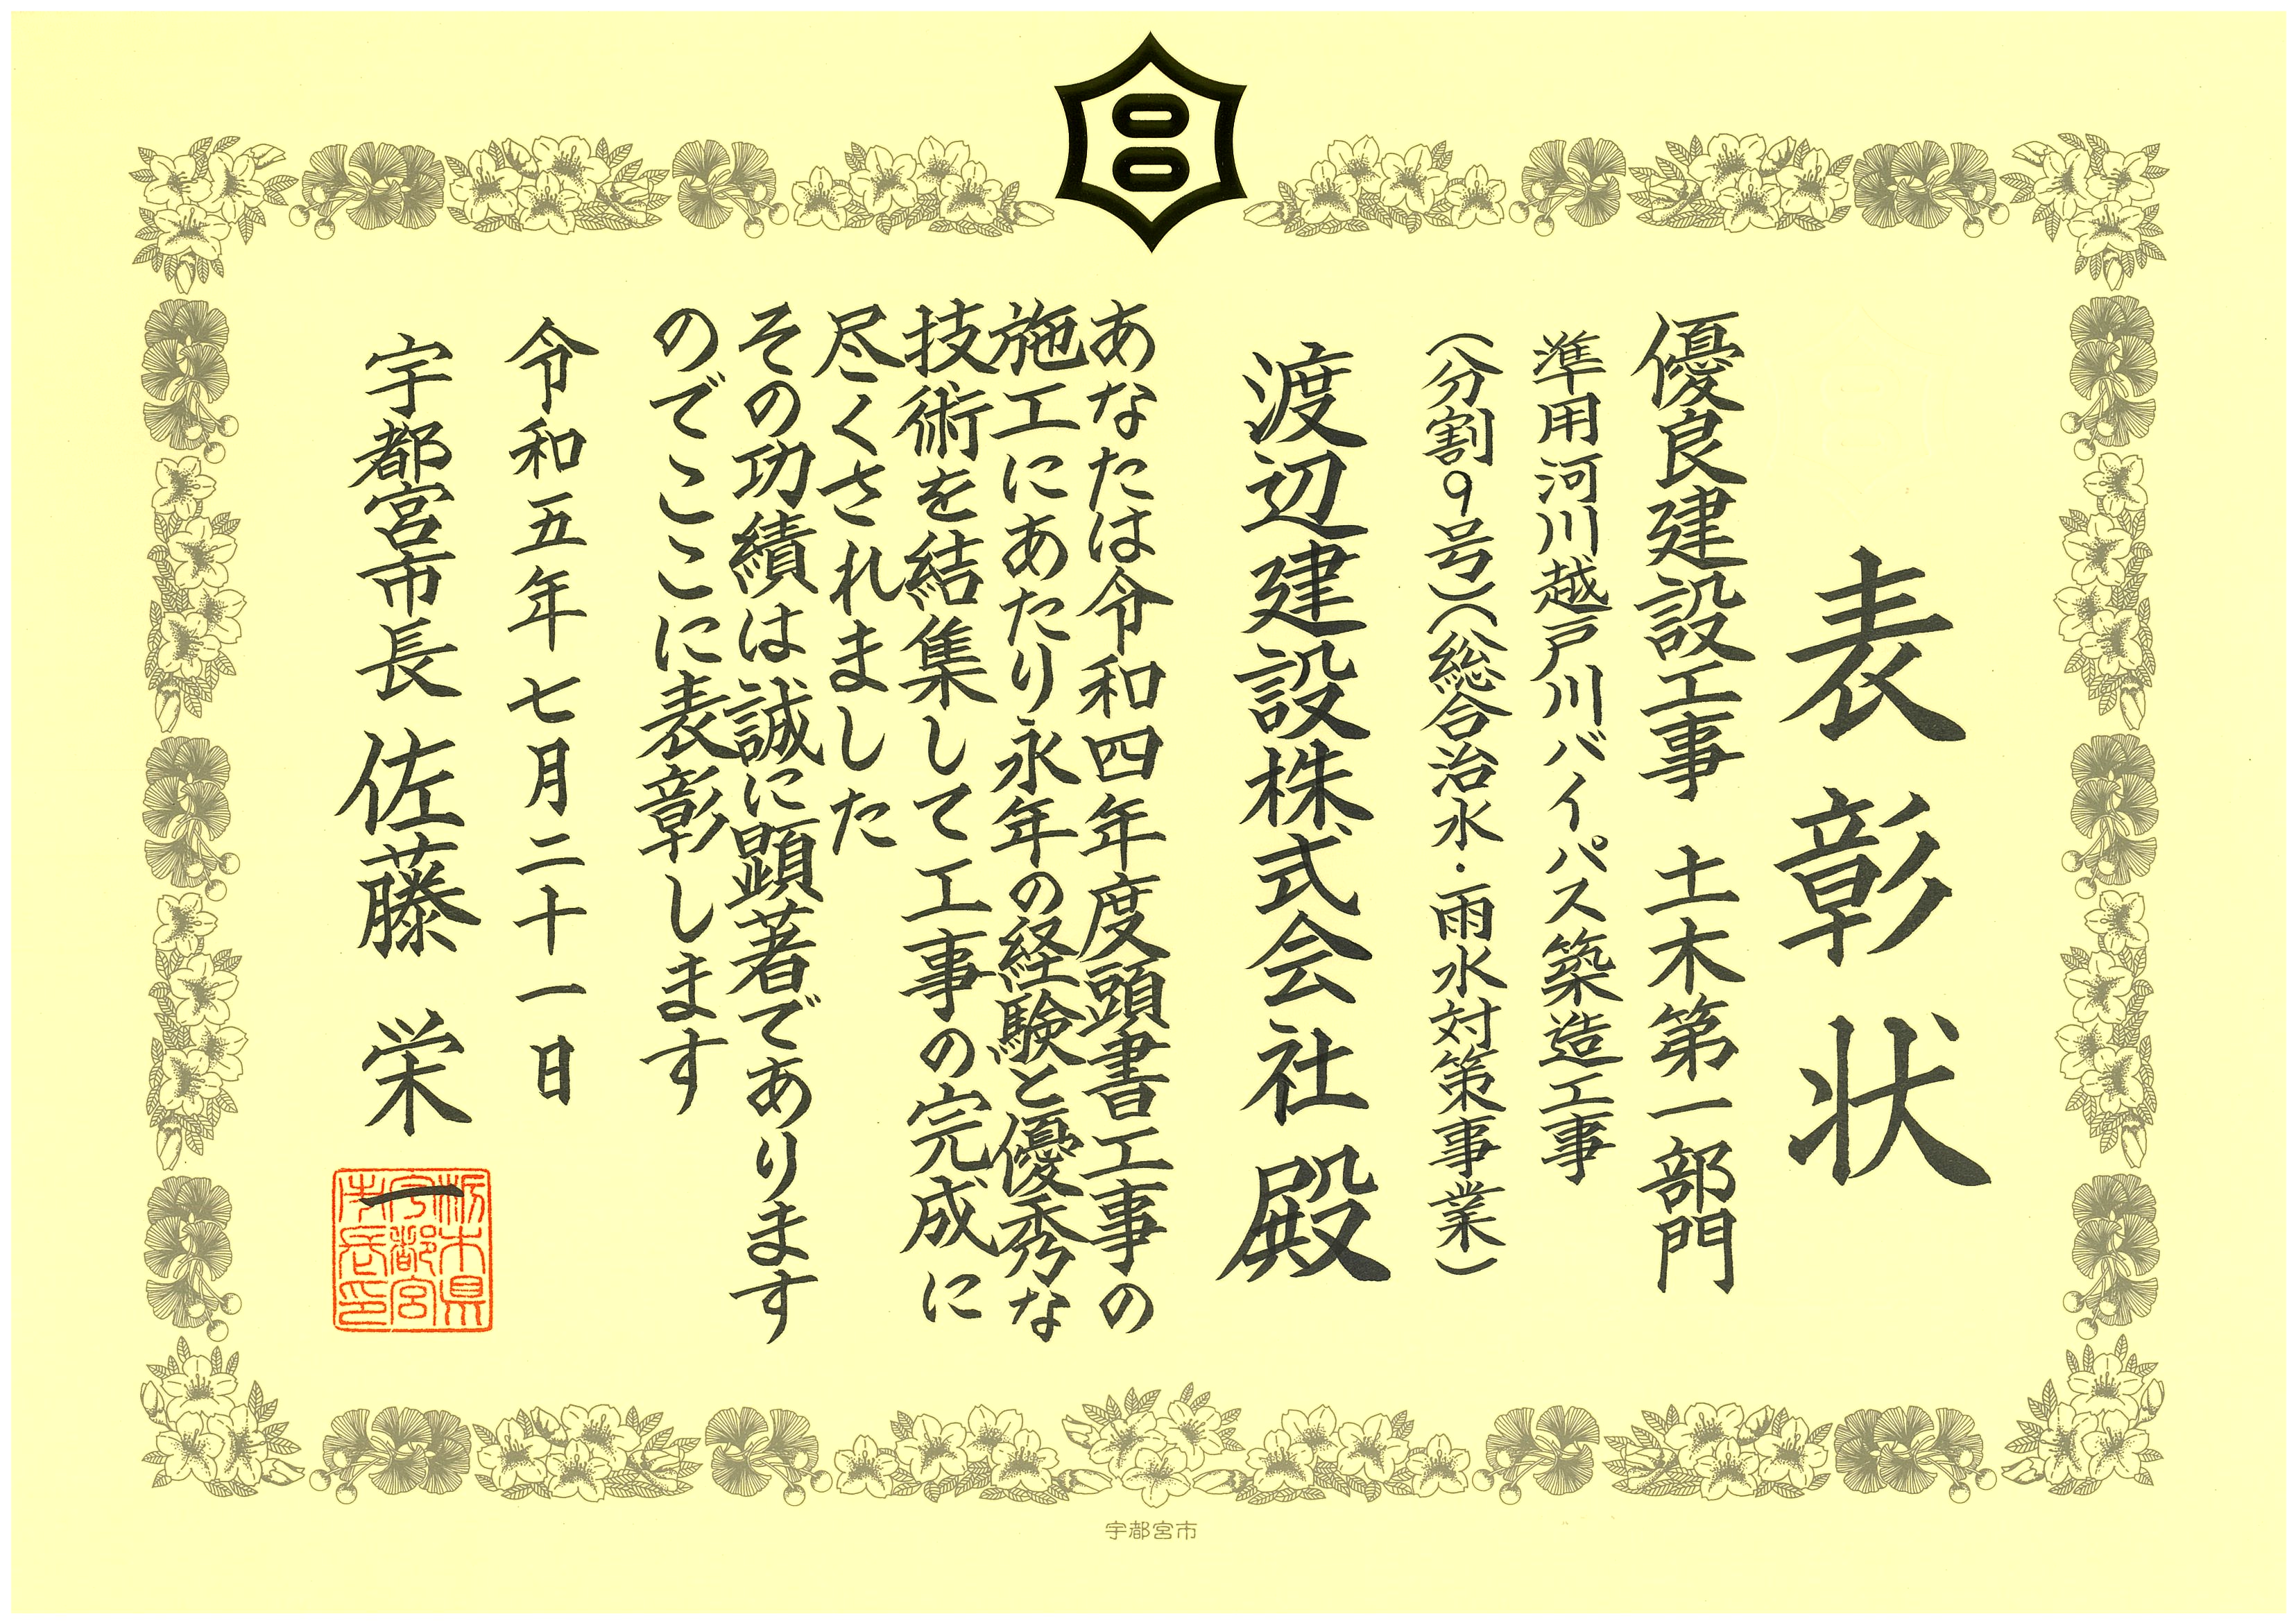 表彰状
優良建設工事 土木第一部門
準用河川越戸川バイパス築造工事
（分割9号）（総合治水・雨水対策事業）
渡辺建設株式会社 殿
あなたは令和四年度頭書工事の
施工にあたり永年の経験と優秀な
技術を結集して工事の完成に
尽くされました
その功績は誠に顕著であります
のでここに表彰します
令和五年七月二十一日
宇都宮市長 佐藤 栄一
栃木県
宇都宮
市長印
宇都宮市